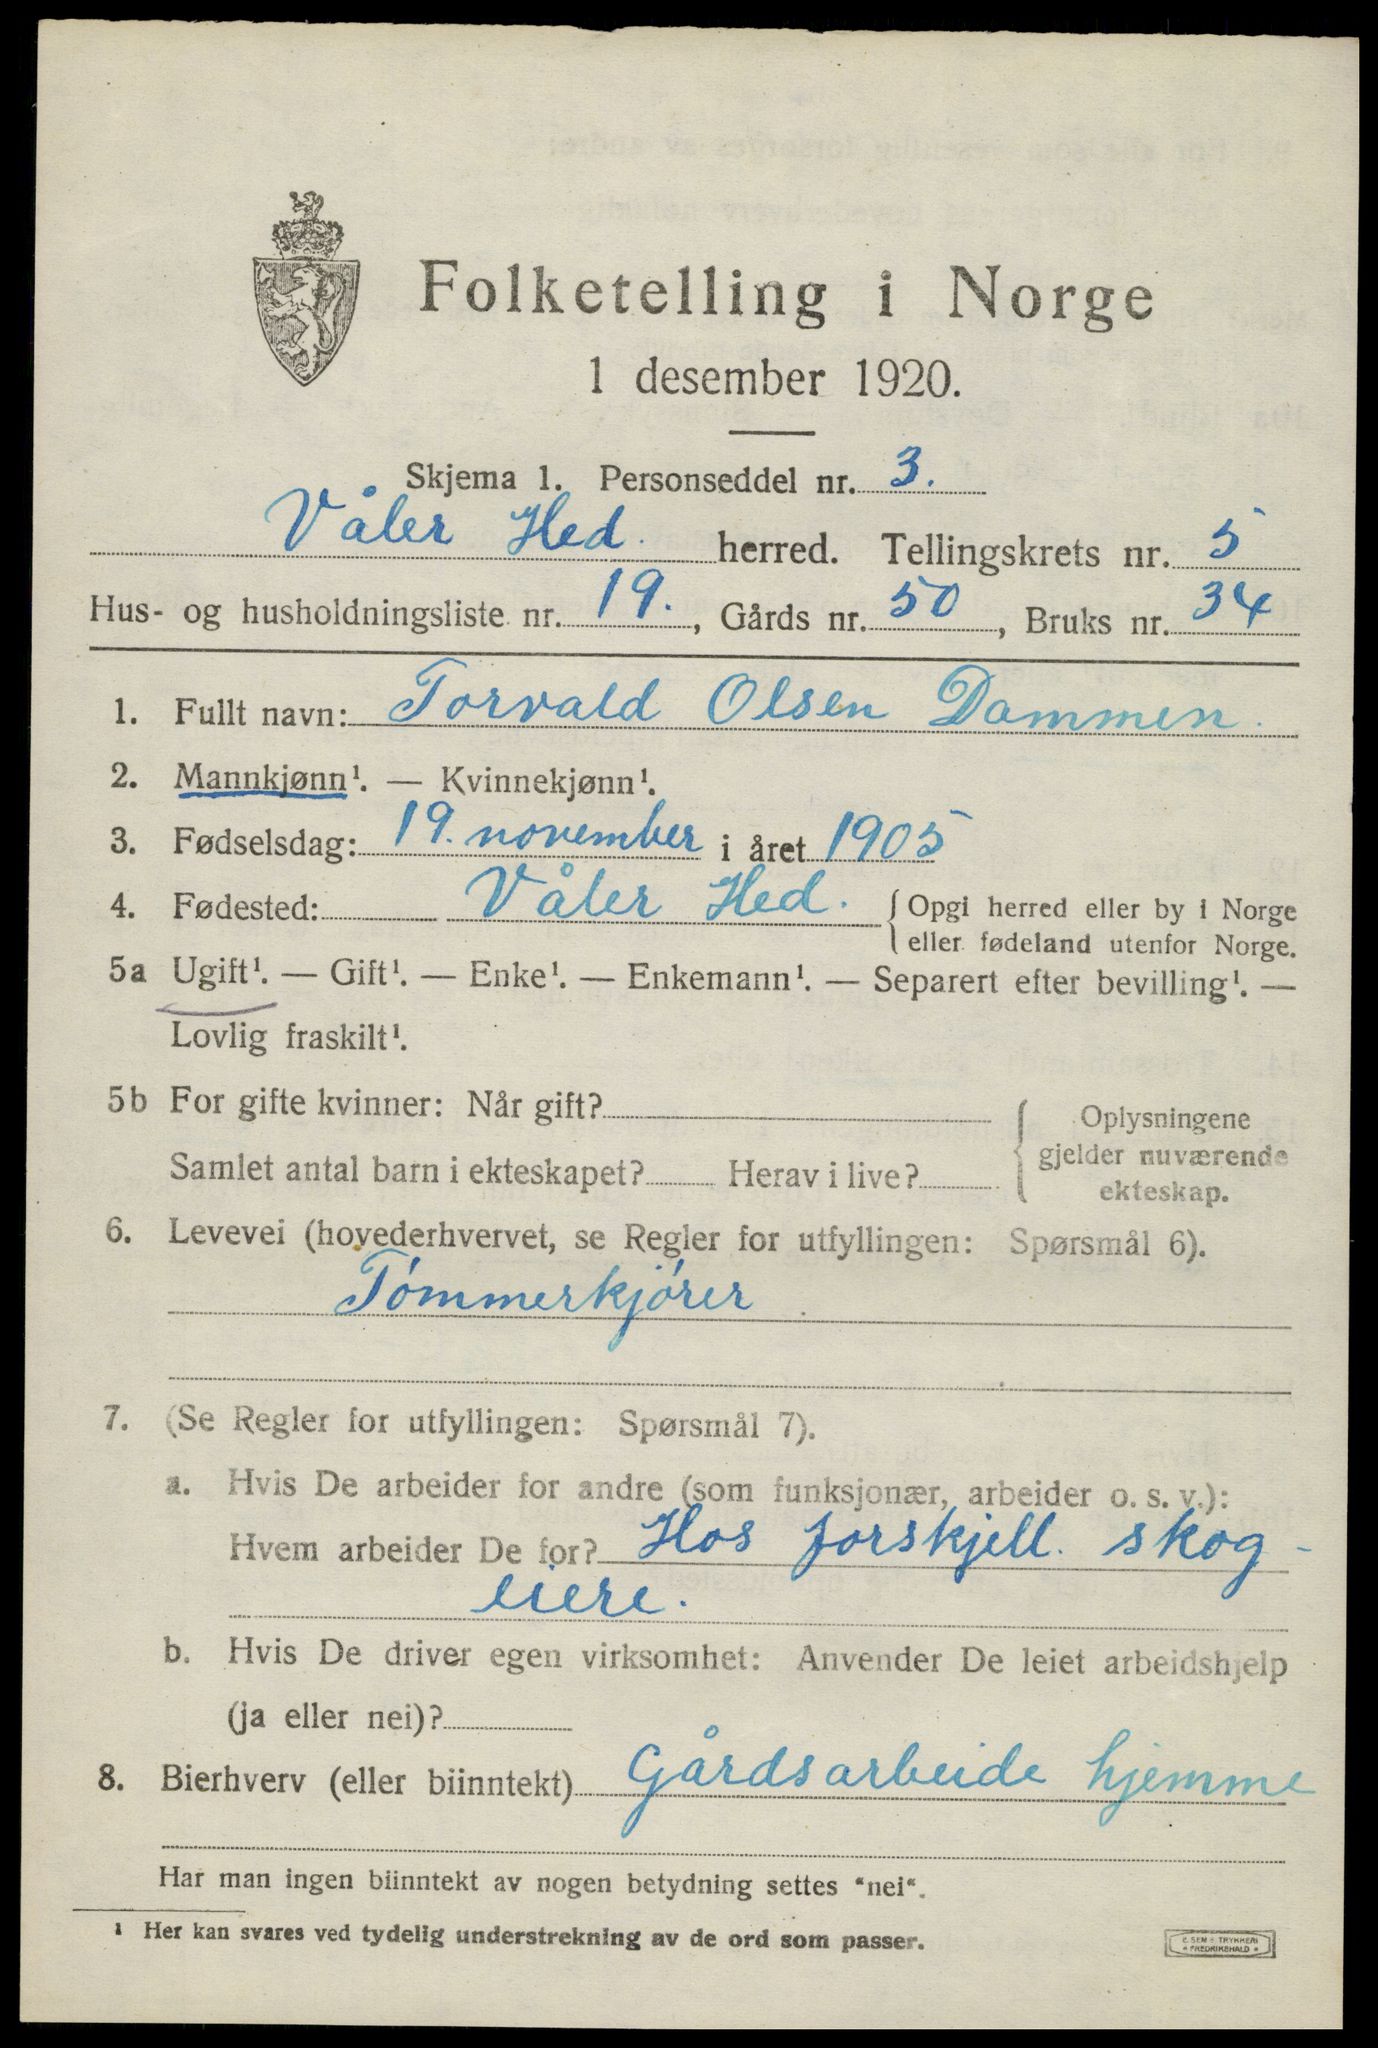 Folketelling i Norge
1 desember 1920.
Skjema 1. Personseddel nr. 3.
Våler Hed. herred. Tellingskrets nr. 5
Hus- og husholdningsliste nr. 19., Gårds nr. 50, Bruks nr. 34
1. Fullt navn: Torvald Olsen Dammen.
2. Mannkjønn¹. — Kvinnekjønn¹.
3. Fødselsdag: 19. november i året 1905
4. Fødested: Våler Hed. { Opgi herred eller by i Norge
eller fødeland utenfor Norge.
5a Ugift¹. — Gift¹. — Enke¹. — Enkemann¹. — Separert efter bevilling¹. —
Lovlig fraskilt¹.
5b For gifte kvinner: Når gift?
Samlet antal barn i ekteskapet? Herav i live?
{ Oplysningene
gjelder nuværende
ekteskap.
6. Levevei (hovederhvervet, se Regler for utfyllingen: Spørsmål 6).
Tömmerkjörer
7. (Se Regler for utfyllingen: Spørsmål 7).
a. Hvis De arbeider for andre (som funksjonær, arbeider o. s. v.):
Hvem arbeider De for? Hos forskjell. skog-
eiere.
b. Hvis De driver egen virksomhet: Anvender De leiet arbeidshjelp
(ja eller nei)?
8. Bierhverv (eller biinntekt) Gårdsarbeide hjemme
Har man ingen biinntekt av nogen betydning settes "nei".
¹ Her kan svares ved tydelig understrekning av de ord som passer.
E. SEM * TRYKKERI
* FREDRIKSHALD *